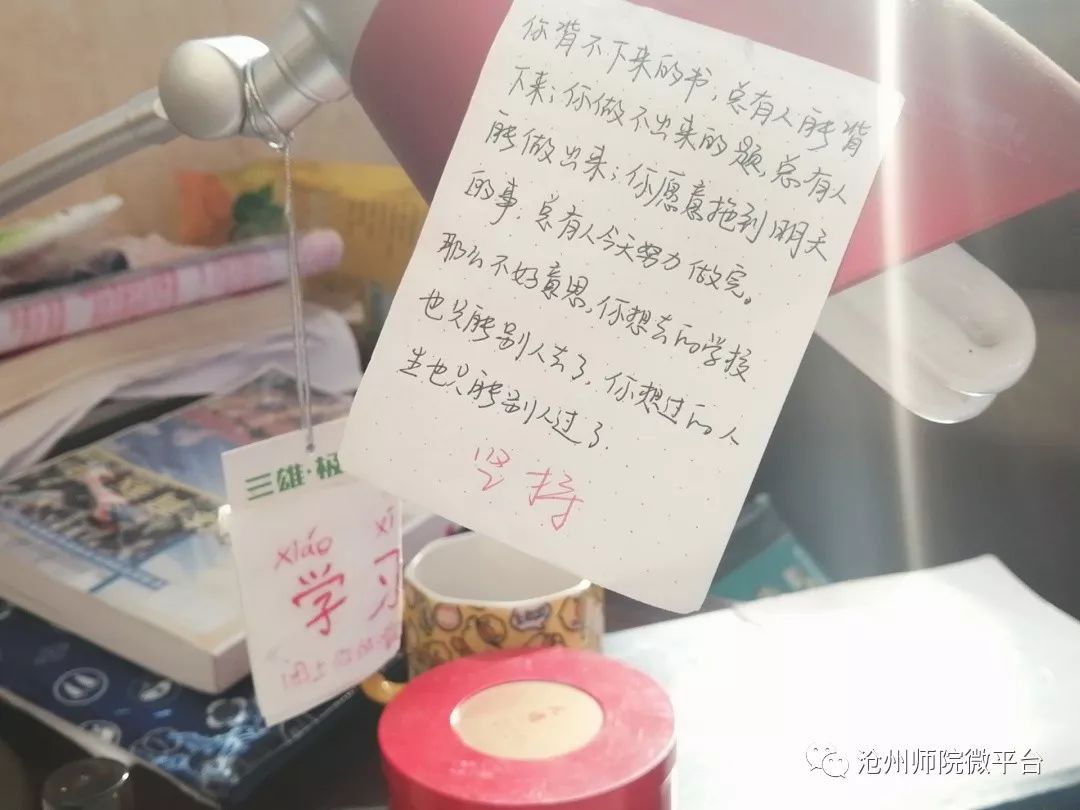 你背不下来的书，总有人能背
下来；你做不出来的题，总有人
能做出来；你愿意拖到明天
的事，总有人今天努力做完。
那么不好意思，你想去的学校
也只能别人去了，你想过的人
生也只能别人过了．
坚持
三雄·极
xiáo xí
学习
沧州师院微平台